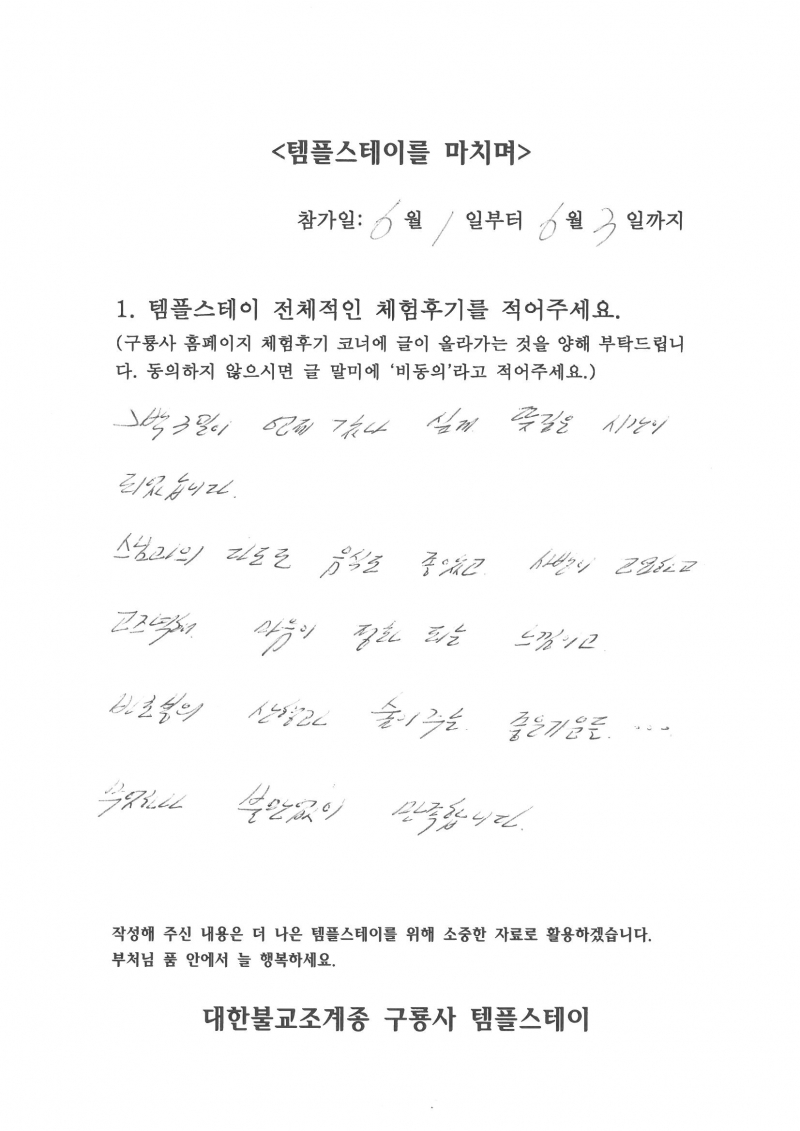 <템플스테이를 마치며>
참가일: 6월 1일부터 6월 3일까지
1. 템플스테이 전체적인 체험후기를 적어주세요.
(구룡사 홈페이지 체험후기 코너에 글이 올라가는 것을 양해 부탁드립니
다. 동의하지 않으시면 글 말미에 ‘비동의’라고 적어주세요.)
2박 3일이 언제 갔나 싶게 뜻깊은 시간이
되었습니다.
스님과의 다도도 음식도 좋았고 사방이 고요하고
고즈넉해 마음이 정화 되는 느낌이고
산행과 숲이 주는 좋은기운들....
불만없이 만족합니다.
작성해 주신 내용은 더 나은 템플스테이를 위해 소중한 자료로 활용하겠습니다.
부처님 품 안에서 늘 행복하세요.
대한불교조계종 구룡사 템플스테이